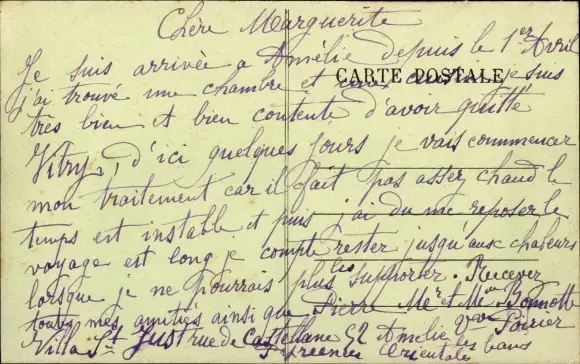 Chère Marguerite
Je suis arrivée a Amélie depuis le 1er Avril
j'ai trouvé une chambre et je suis
CARTE POSTALE
très bien et bien contente d'avoir quitté
Vitry, d'ici quelques jours je vais commencer
mon traitement car il fait pas assez chaud le
temps est instable et puis j'ai du me reposer le
voyage est long je compte rester jusqu'aux chaleurs
lorsque je ne pourrais plus les supporter. Recevez
toutes mes amitiés ainsi que Pierre Mr et Mme Bonnotte
Vve Poirier
Villa St Just rue de Castellane 52 Amélie les bains
Pyrénées Orientales